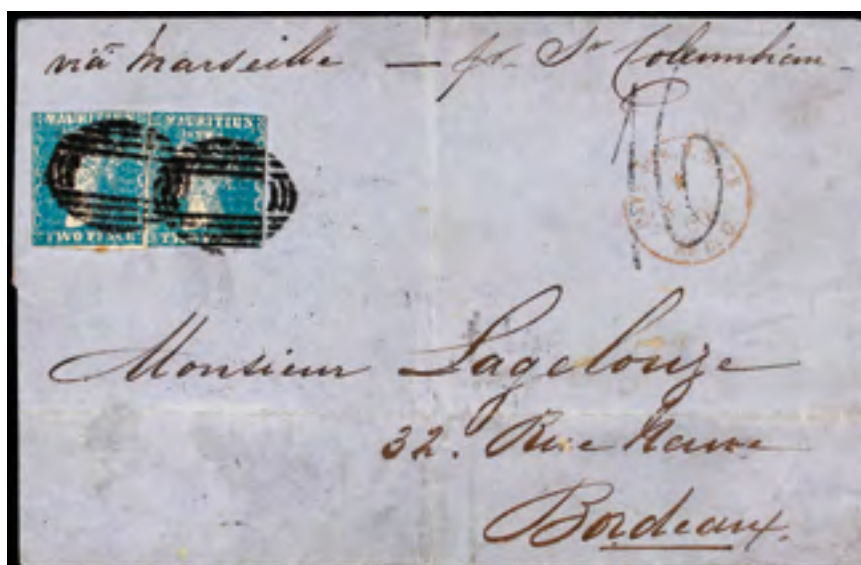 via Marseille — pr. Str Columbian
MAURITIUS MAURITIUS
TWO PENCE
16
Monsieur Lagelouze
32. Rue Neuve
Bordeaux.